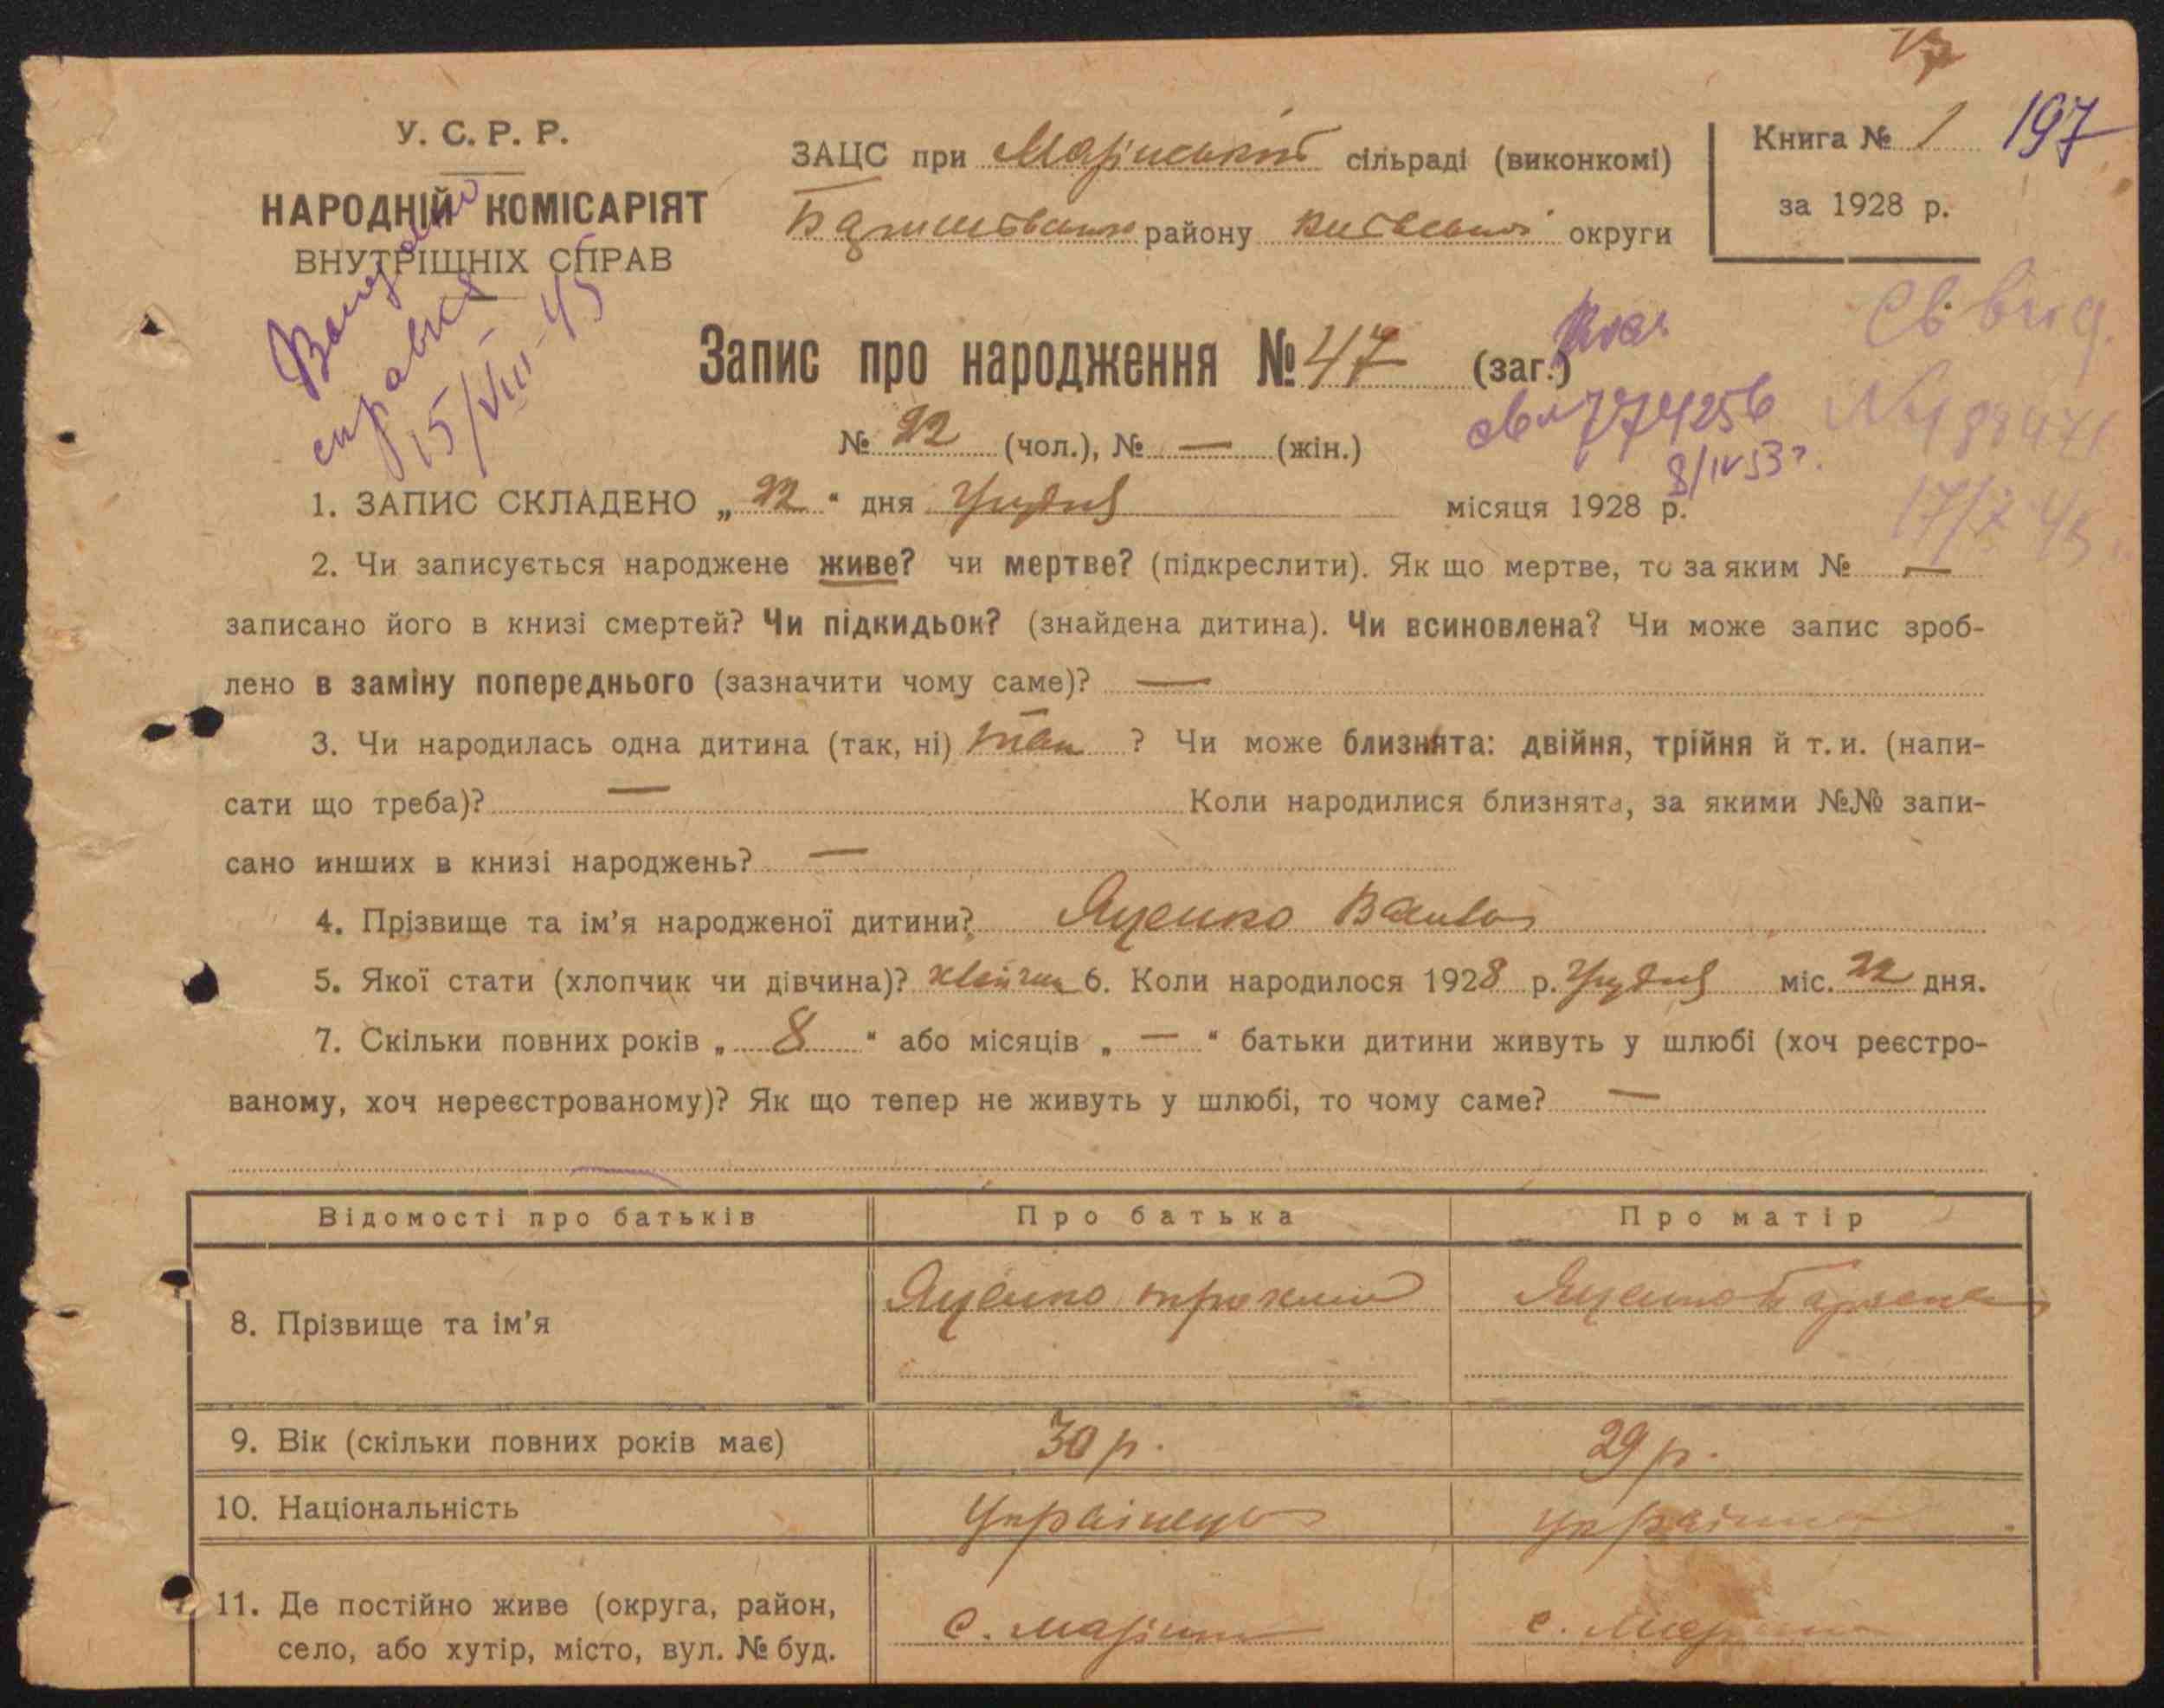 197
У. С. Р. Р.
НАРОДНІЙ КОМІСАРІЯТ
ВНУТРІШНІХ СПРАВ
ЗАЦС при Маріській сільраді (виконкомі)
району Київської округи
Книга № 1
за 1928 р.
справка
15/VIII-45
Запис про народження № 47 (заг.)
774256
8/IV 53 г.
№ 22 (чол.), № — (жін.)
1. ЗАПИС СКЛАДЕНО „ 22 “ дня Грудня місяця 1928 р.
2. Чи записується народжене живе? чи мертве? (підкреслити). Як що мертве, то за яким № —
записано його в книзі смертей? Чи підкидьок? (знайдена дитина). Чи всиновлена? Чи може запис зроб-
лено в заміну попереднього (зазначити чому саме)? —
3. Чи народилась одна дитина (так, ні) так ? Чи може близнята: двійня, трійня й т. и. (напи-
сати що треба)? — Коли народилися близнята, за якими №№ запи-
сано инших в книзі народжень? —
4. Прізвище та ім’я народженої дитини? Яценко
5. Якої стати (хлопчик чи дівчина)? 6. Коли народилося 1928 р. Грудня міс. 22 дня.
7. Скільки повних років „ 8 “ або місяців „ — “ батьки дитини живуть у шлюбі (хоч реєстро-
ваному, хоч нереєстрованому)? Як що тепер не живуть у шлюбі, то чому саме? —
Відомості про батьків Про батька Про матір
8. Прізвище та ім’я Яценко Яценко
9. Вік (скільки повних років має) 30 р. 29 р.
10. Національність Українець українка
11. Де постійно живе (округа, район,
село, або хутір, місто, вул. № буд.
с. с.